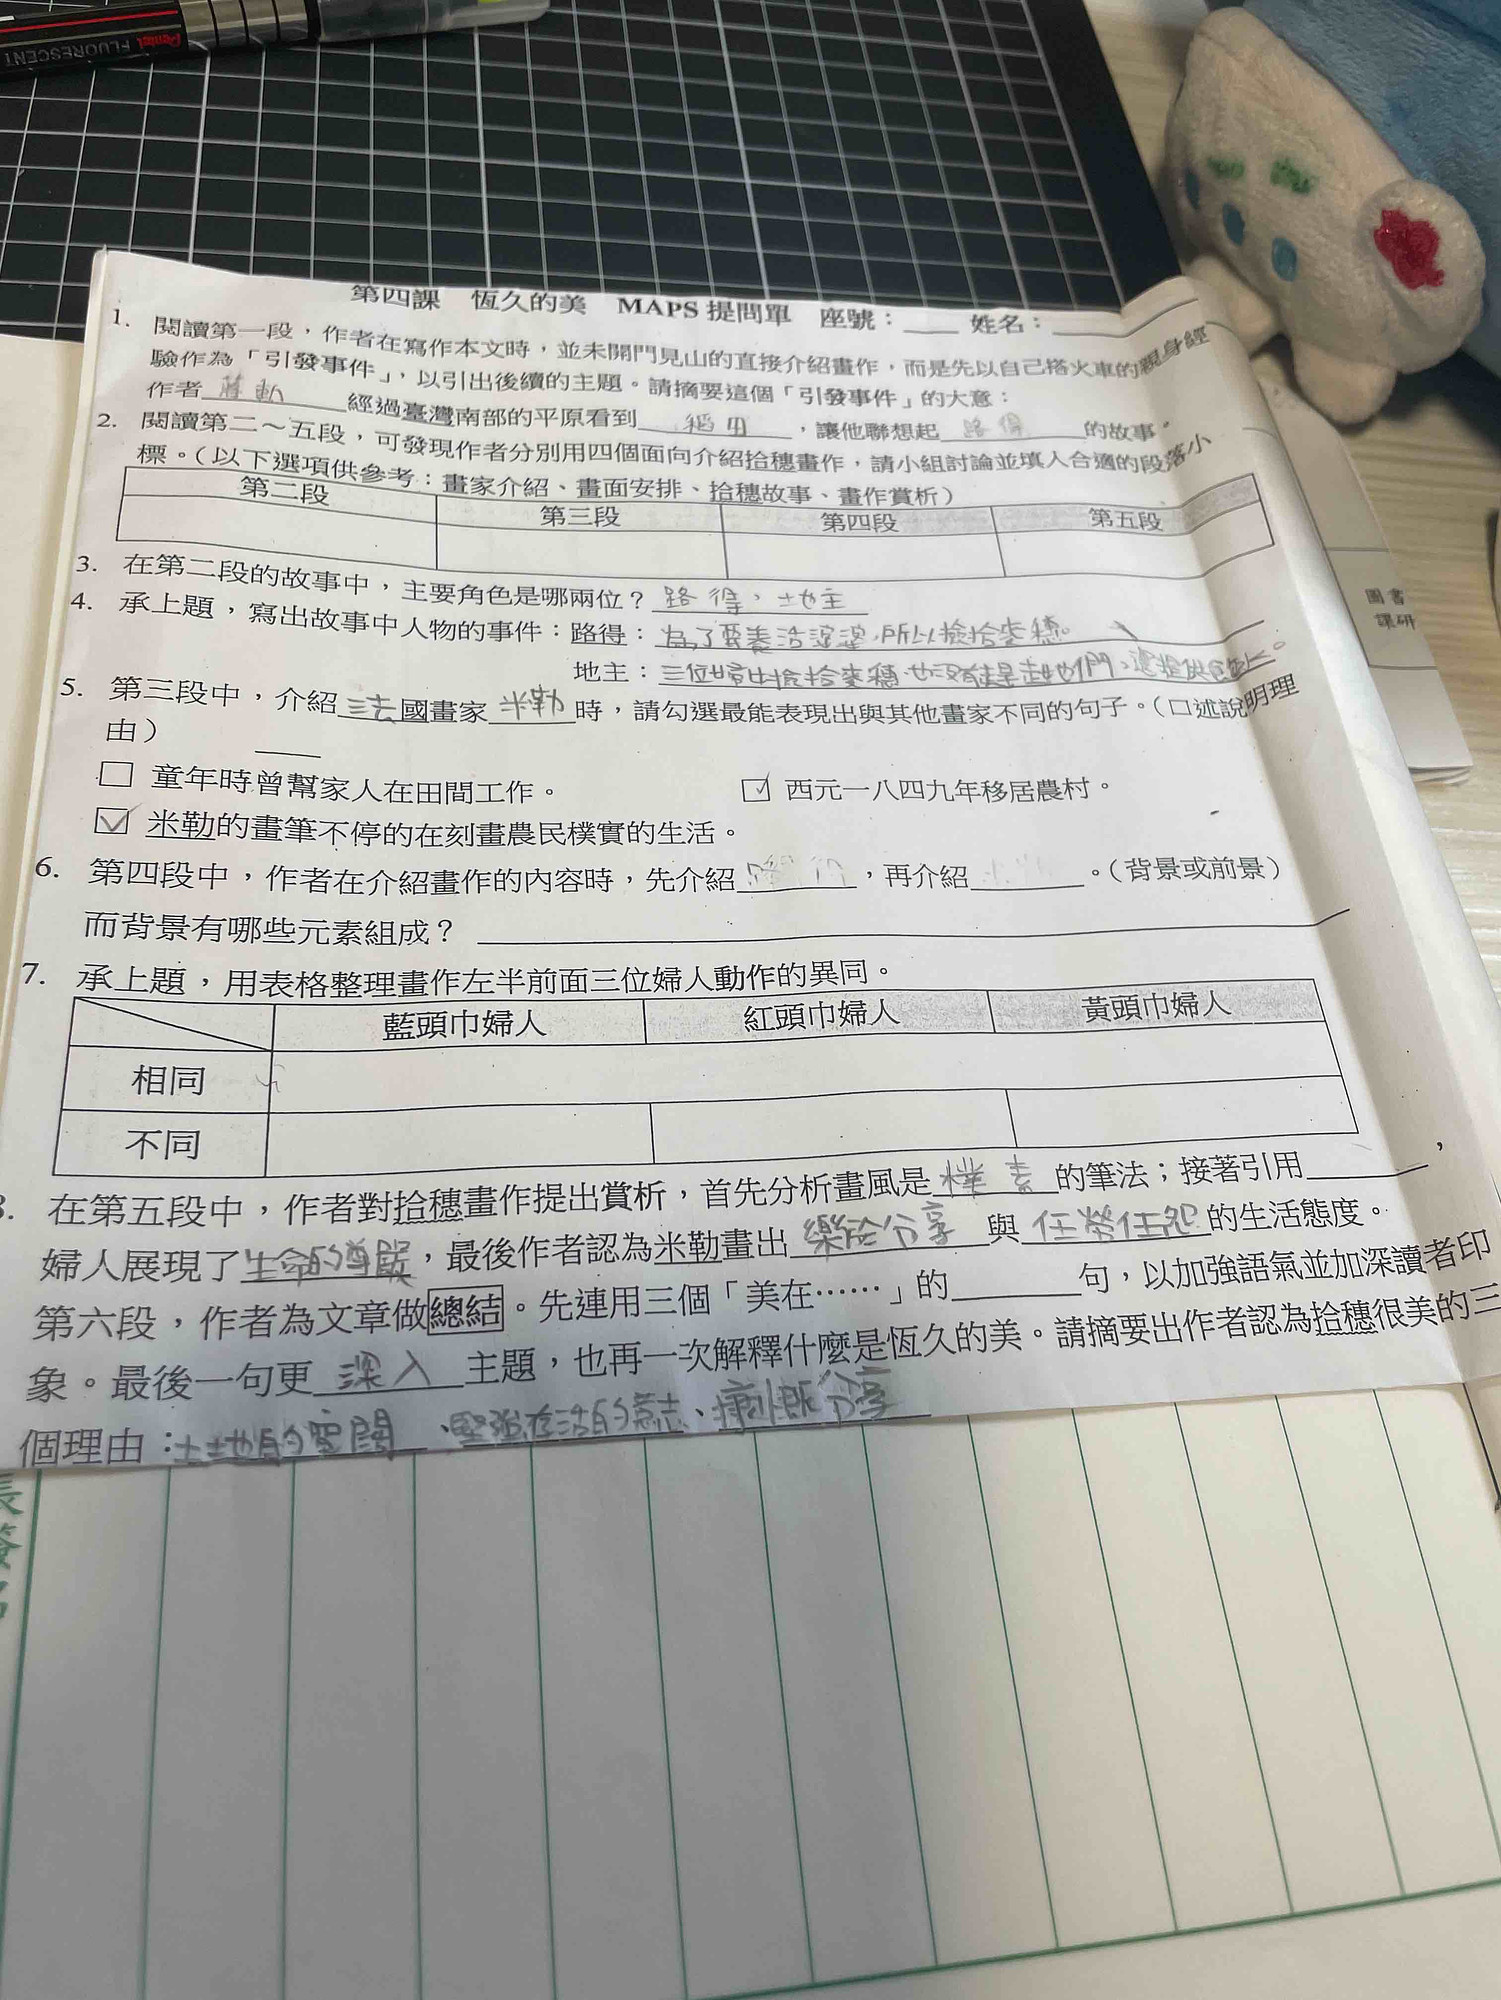 Pentel FLUORESCENT
第四課 恆久的美 MAPS 提問單 座號：____ 姓名：
1. 閱讀第一段，作者在寫作本文時，並未開門見山的直接介紹畫作，而是先以自己搭火車的親身經
驗作為「引發事件」，以引出後續的主題。請摘要這個「引發事件」的大意：
作者 蔣勳 經過臺灣南部的平原看到 稻田 ，讓他聯想起 路得 的故事。
2. 閱讀第二～五段，可發現作者分別用四個面向介紹拾穗畫作，請小組討論並填入合適的段落小
標。（以下選項供參考：畫家介紹、畫面安排、拾穗故事、畫作賞析）
第二段 第三段 第四段 第五段
3. 在第二段的故事中，主要角色是哪兩位？路得，地主
4. 承上題，寫出故事中人物的事件：路得：為了要養活婆婆，所以撿拾麥穗。
地主：三位婦女撿拾麥穗，也沒有趕走她們，還提供
5. 第三段中，介紹 法 國畫家 米勒 時，請勾選最能表現出與其他畫家不同的句子。（口述說明理
由）
☐ 童年時曾幫家人在田間工作。 ☑ 西元一八四九年移居農村。
☑ 米勒的畫筆不停的在刻畫農民樸實的生活。
6. 第四段中，作者在介紹畫作的內容時，先介紹________，再介紹________。（背景或前景）
而背景有哪些元素組成？
7. 承上題，用表格整理畫作左半前面三位婦人動作的異同。
藍頭巾婦人 紅頭巾婦人 黃頭巾婦人
相同
不同
8. 在第五段中，作者對拾穗畫作提出賞析，首先分析畫風是 樸素 的筆法；接著引用________，
婦人展現了 生命的尊嚴 ，最後作者認為米勒畫出 樂於分享 與 任勞任怨 的生活態度。
第六段，作者為文章做總結。先連用三個「美在……」的________句，以加強語氣並加深讀者印
象。最後一句更 深入 主題，也再一次解釋什麼是恆久的美。請摘要出作者認為拾穗很美的三
個理由：土地的空闊、堅強存活的意志、慷慨分享
圖書
課研